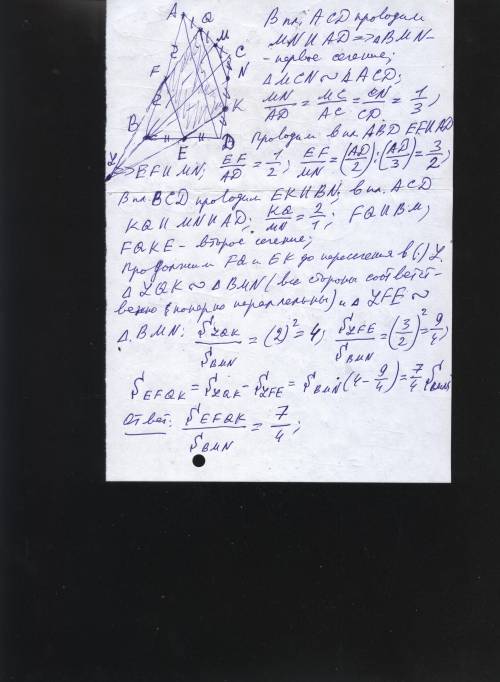 A Q M C N K D E B F L
В пл. ACD проводим
MN II AD => ΔBMN-
- первое сечение;
ΔMCN ~ ΔACD;
MN/AD = MC/AC = CN/CD = 1/3;
Проводим в пл. ABD EF II AD
=> EF II MN; EF/AD = 1/2; EF/MN = (AD/2) : (AD/3) = 3/2;
В пл. BCD проводим EK II BN; в пл. ACD
KQ II MN II AD; KQ/MN = 2/1; FQ II BM;
FQKE - второе сечение;
Продолжим FQ и EK до пересечения в (·) L.
Δ LQK ~ ΔBMN (все стороны соответст-
венно попарно параллельны) и Δ LFE ~
Δ BMN; S LQK / S BMN = (2)² = 4; S LFE / S BMN = (3/2)² = 9/4;
S EFQK = S LQK - S LFE = S BMN (4 - 9/4) = 7/4 S BMN
Ответ: S EFQK / S BMN = 7/4;